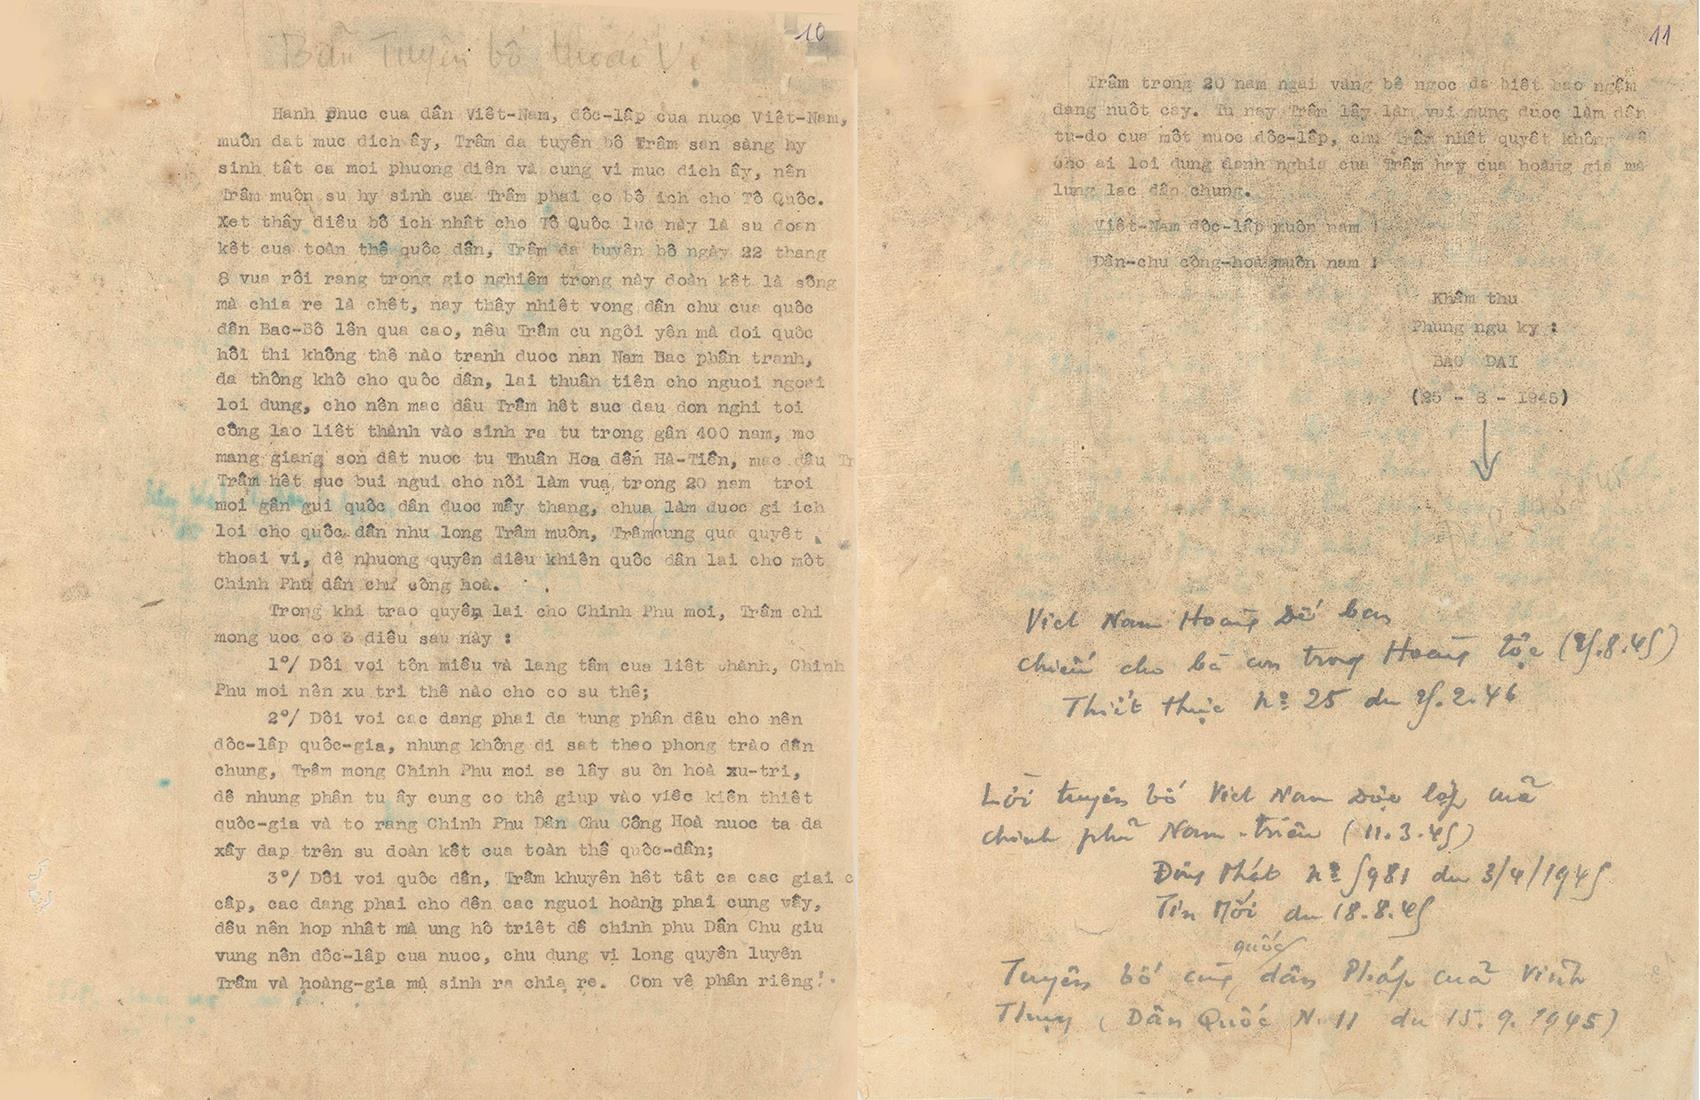 10
Bản Tuyên bố thoái vị
Hanh phuc cua dân Viêt-Nam, dôc-lâp cua nuoc Viêt-Nam,
muôn dat muc dich ây, Trâm da tuyên bô Trâm san sàng hy
sinh tât ca moi phuong diên và cung vi muc dich ây, nên
Trâm muôn su hy sinh cua Trâm phai co bô ich cho Tô Quôc.
Xet thây diêu bô ich nhât cho Tô Quôc luc này là su doan
kêt cua toàn thê quôc dân, Trâm da tuyên bô ngày 22 thang
8 vua rôi rang trong gio nghiêm trong này doàn kêt là sông
mà chia re là chêt, nay thây nhiêt vong dân chu cua quôc
dân Bac-Bô lên qua cao, nêu Trâm cu ngôi yên mà doi quôc
hôi thi không thê nào tranh duoc nan Nam Bac phân tranh,
da thông khô cho quôc dân, lai thuân tiên cho nguoi ngoai
loi dung, cho nên mac dâu Trâm hêt suc dau don nghi toi
công lao liêt thành vào sinh ra tu trong gân 400 nam, mo
mang giang son dât nuoc tu Thuân Hoa dến Hà-Tiên, mac dâu Tr
Trâm hêt suc bui ngui cho nôi làm vua trong 20 nam troi
moi gân gui quôc dân duoc mây thang, chua làm duoc gi ich
loi cho quôc dân nhu long Trâm muôn, Trâmcung qua quyêt
thoai vi, dê nhuong quyên diêu khiên quôc dân lai cho môt
Chinh Phu dân chu công hoà.
Trong khi trao quyên lai cho Chinh Phu moi, Trâm chi
mong uoc co 3 diêu sau này :
1°/ Dôi voi tôn miêu và lang tâm cua liêt thành, Chinh
Phu moi nên xu tri thê nào cho co su thê;
2°/ Dôi voi cac dang phai da tung phân dâu cho nên
dôc-lâp quôc-gia, nhung không di sat theo phong trào dân
chung, Trâm mong Chinh Phu moi se lây su ôn hoà xu-tri,
dê nhung phân tu ây cung co thê giup vào viêc kiên thiêt
quôc-gia và to rang Chinh Phu Dân Chu Công Hoà nuoc ta da
xây dap trên su doàn kêt cua toàn thê quôc-dân;
3°/ Dôi voi quôc dân, Trâm khuyên hêt tât ca cac giai c
câp, cac dang phai cho dên cac nguoi hoàng phai cung vây,
dêu nên hop nhât mà ung hô triêt dê chinh phu Dân Chu giu
vung nên dôc-lâp cua nuoc, chu dung vi long quyên luyên
Trâm và hoàng-gia mà sinh ra chia re. Con vê phân riêng
11
Trâm trong 20 nam ngai vàng bê ngoc da biêt bao ngâm
dang nuôt cay. Tu nay Trâm lây làm vui mung duoc làm dân
tu-do cua môt nuoc dôc-lâp, chu Trâm nhât quyêt không dê
cho ai loi dung danh nghia cua Trâm hay cua hoàng gia mà
lung lac dân chung.
Viêt-Nam dôc-lâp muôn nam !
Dân-chu công-hoà muôn nam !
Khâm thu
Phung ngu ky :
BAO DAI
(25 - 8 - 1945)
Việt Nam Hoàng Đế ban
chiếu cho bà con trong Hoàng tộc (25.8.45)
Thiết thực nº 25 du 25.2.46
Lời tuyên bố Việt Nam Độc lập của
chính phủ Nam-triều (11.3.45)
Đông Phát nº 5981 du 3/4/1945
Tin Mới du 18.8.45
quốc
Tuyên bố cùng dân Pháp của Vĩnh
Thụy (Dân Quốc N. 11 du 15.9.1945)